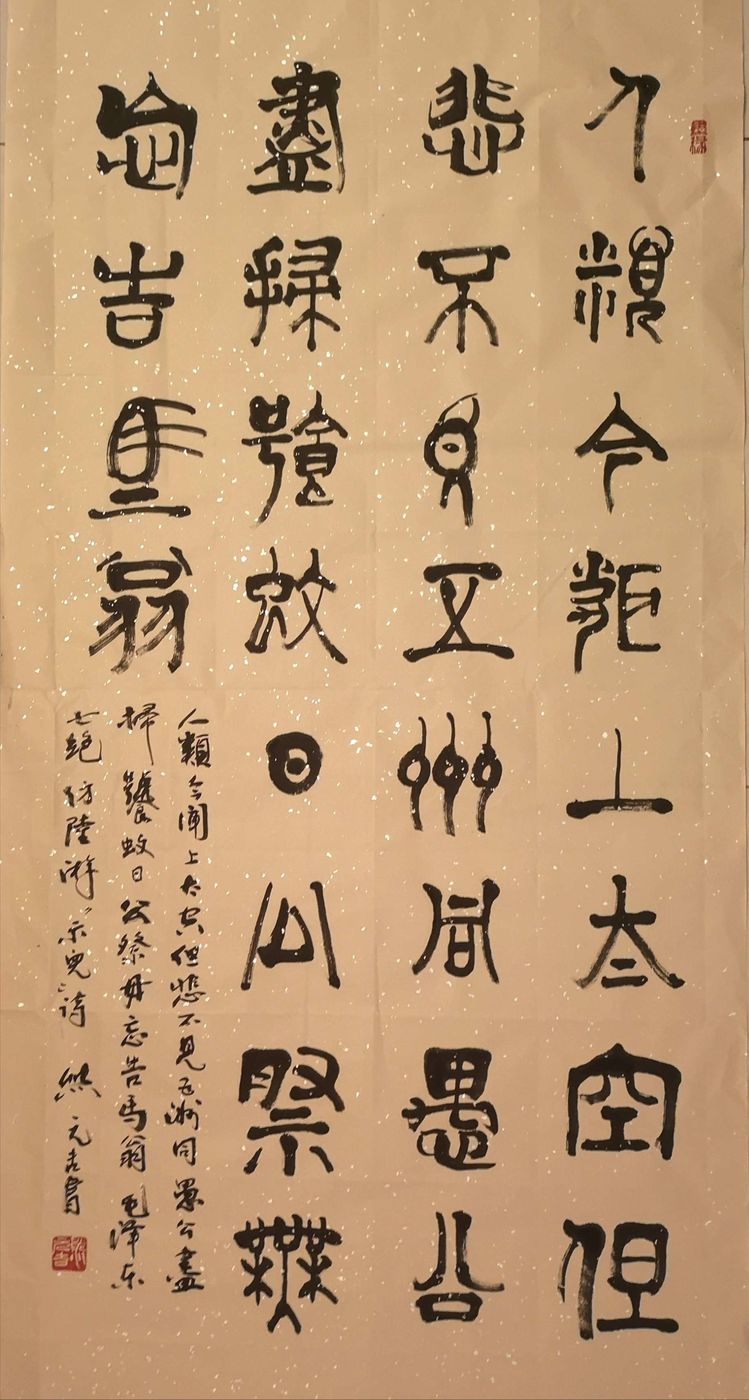 人類今上太空但
悲不見五州同愚公
盡掃饕蚊日公祭無
忘告馬翁
人類今上太空但悲不見五洲同愚公盡
掃饕蚊日公祭毋忘告馬翁 毛澤东
七絕仿陸游示兒詩 熊元吉書